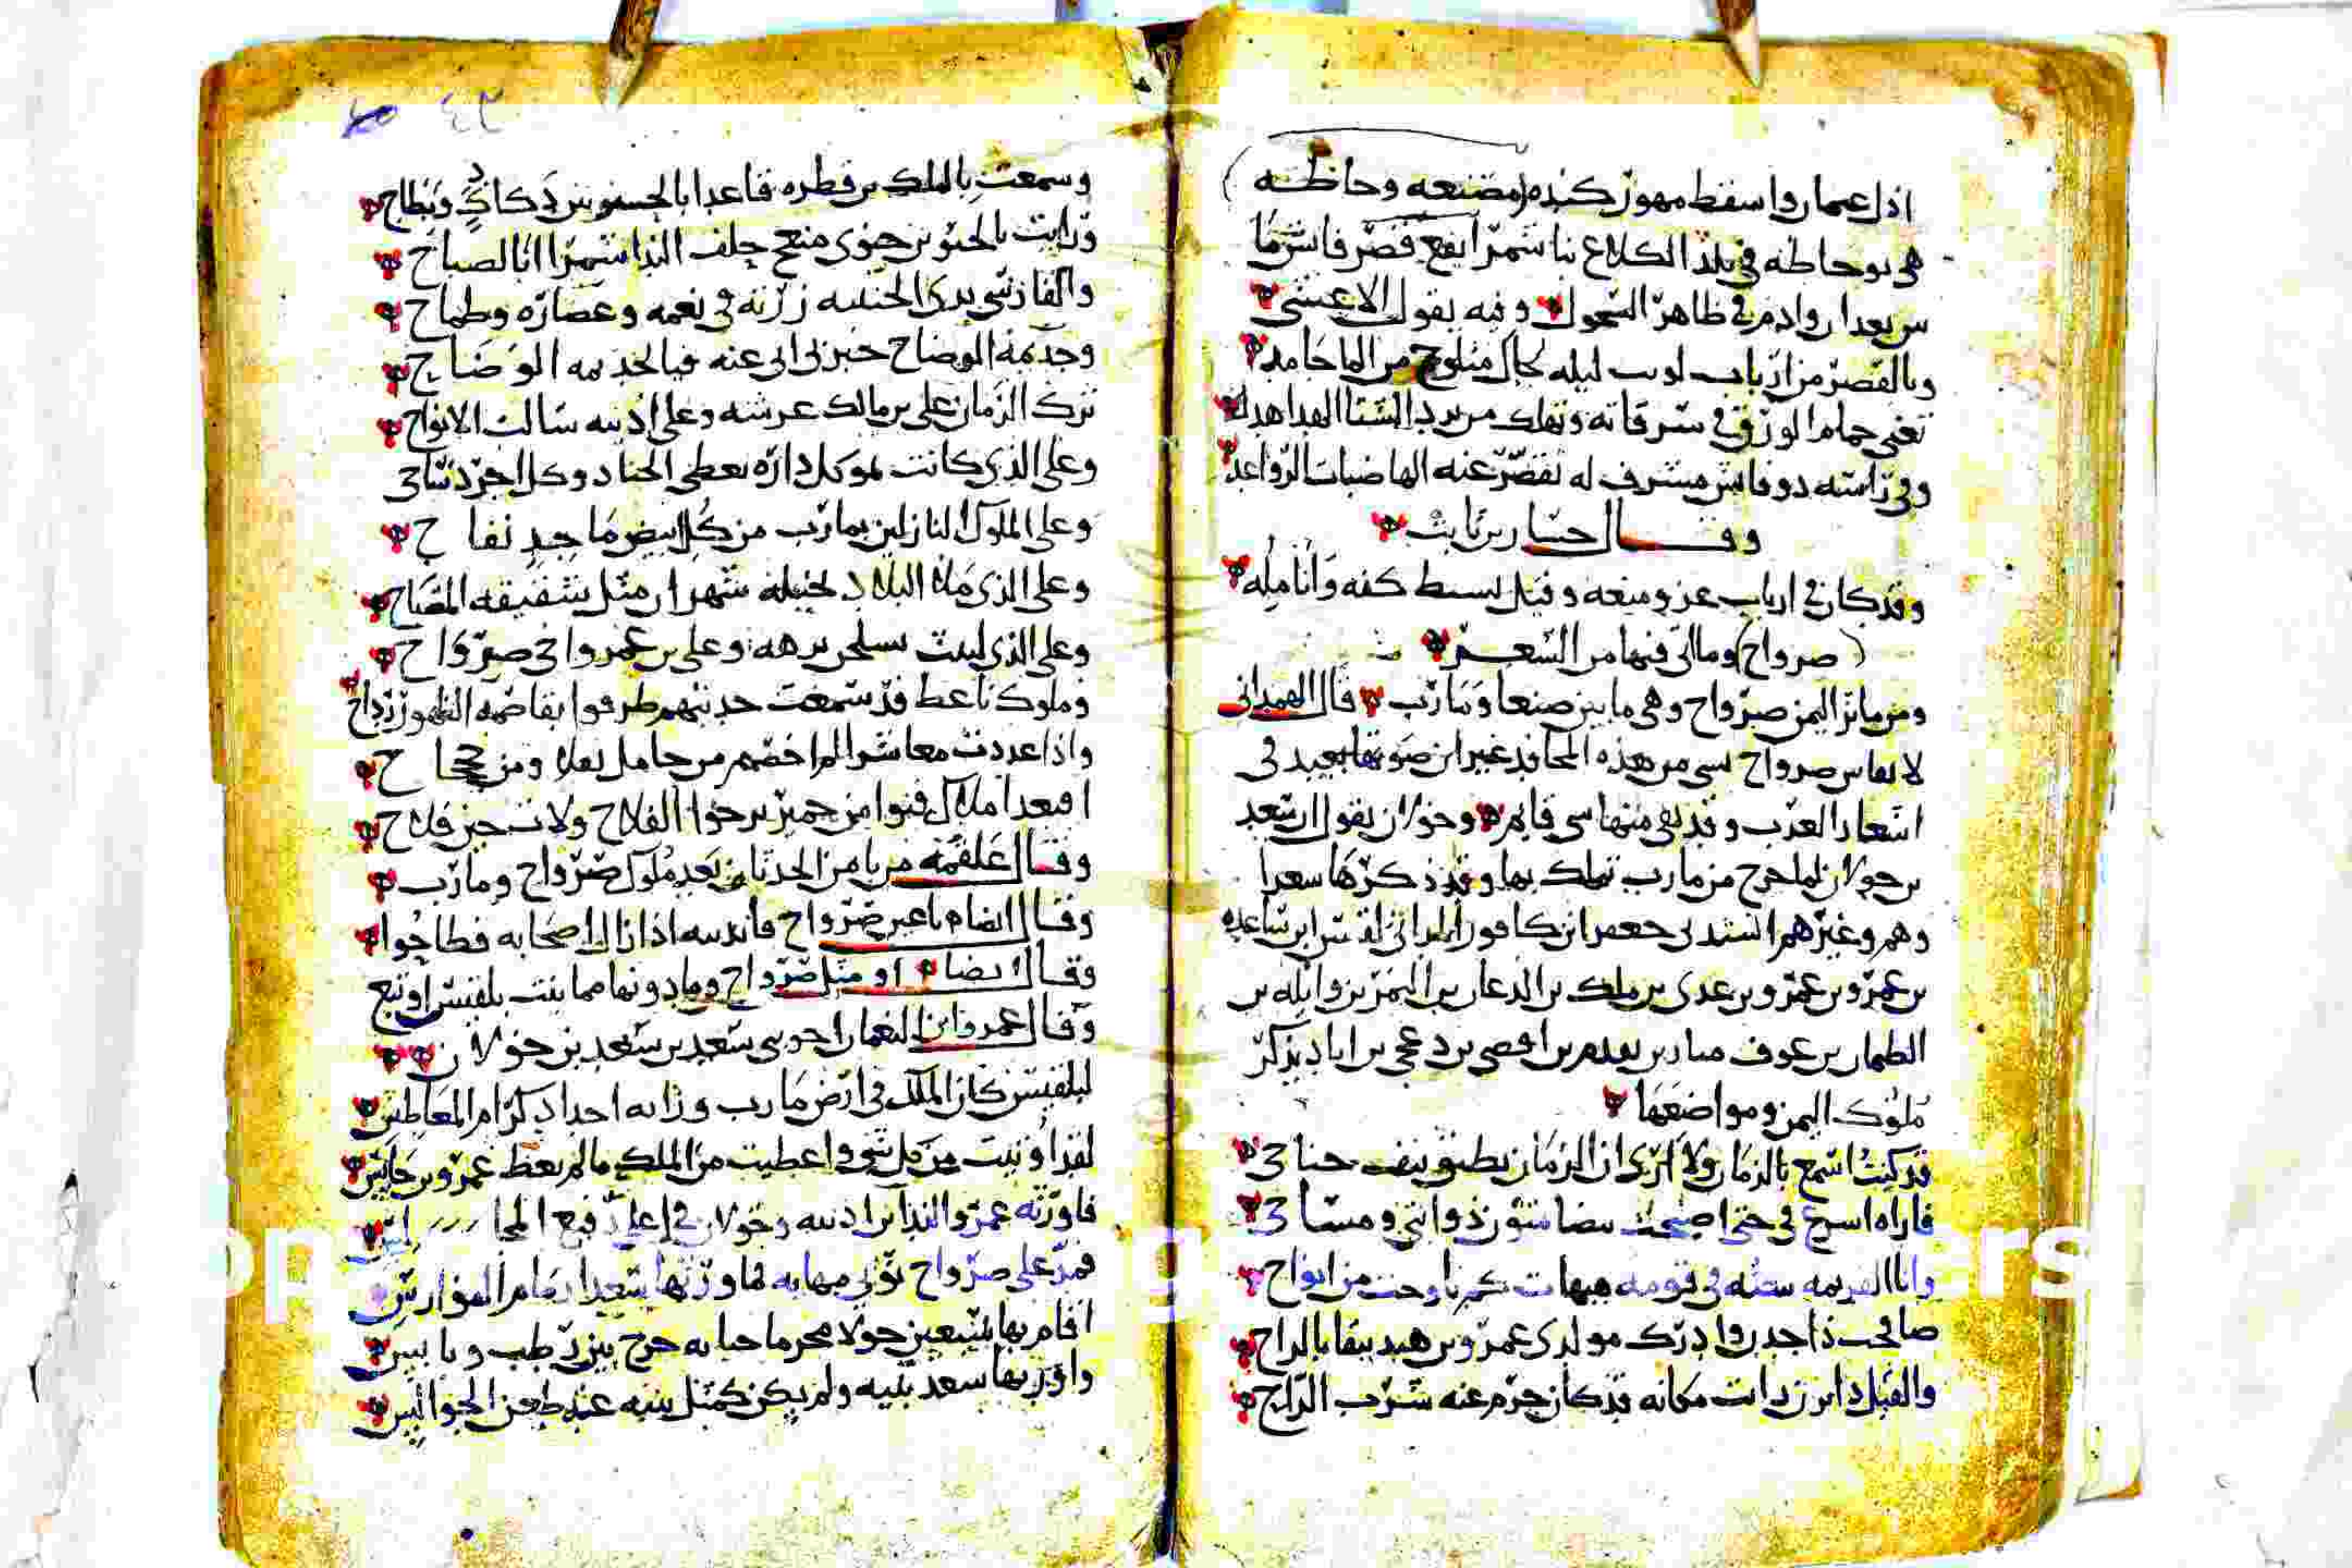 اذل عمار واسقط مهور كنده (مصنعه وحاظه)
هي بوحاظه في بلد الكلاع بنا شمر ايفع قصر فايش ما
بين بعدان وادم في ظاهر السحول وفيه يقول الاعشى
وبالقصر من ارياب لو بت ليله لجاك مثلوج من الما جامد
تغنى حمام الورق في سرقاته وتهلك من برد الشتا الهداهد
وفي راسه ذو فايش مشرف له تقصر عنه الهاضبات الرواعد
وقال حسان بن ثابت
وقد كان في ارياب عز ومنعه وقيل بسيط كفه وانامله
(صرواح) وما اتى فيها من الشعر
ومن ماثر اليمن صرواح وهي ما بين صنعا ومارب قال الهمداني
لا يقاس صرواح بشي من هذه المحافد غير ان صوتها بعيد في
اشعار العرب وقد بقي منها شي قايم وخولان يقول ان سعد
بن خولان لما خرج من مارب تملك بها وقد ذكرها سعدا
وهم وغيرهم انشدني جعفر ابن كافور لقس ابن ساعده
بن عمرو بن عمرو بن عدي بن ملك بن الدعان بن النمر بن وايله بن
الطمثان بن عوف مناه بن يقدم بن افصى بن دعمي بن اياد يذكر
ملوك اليمن ومواضعها
قد كنت اسمع بالزمان ولا ارى ان الزمان يطيق نيف جناحي
فاراه اسرع في حتى اصبحت بيضا متون ذوائتي ومسايحي
في قومه هيهات كم من ارواح
صافحت ذا جدن وادرك مولدي عمرو بن هند يتقا بالراح
والقيل ذا يزن رايت مكانه قد كان حرم عنه شرب الراح
وسمعت بالملك بن قطره قاعدا بالحسنوين دكادك وبطاح
ورايت بالحنوين حنوى منعج حلف الندا شمرا ابا الصباح
زرته في نعمه وغضاره وطماح
وجذيمة الوضاح خبرني ابي عنه فيا لجذيمه الوضاح
ترك الزمان على بن مالك عرشه وعلى اذينه سالب الارواح
وعلى الذي كانت بموكل داره يعطي الجياد وكل اجرد شاحي
وعلى الملوك النازلين بمارب من كل ابيض ماجد نفاح
وعلى الذي ملا البلاد بخيله شهران مثل شقيقه المصباح
وعلى الذي لبثت بسلحين برهه وعلى بن عمرو اخي صرواح
وملوك ناعط قد سمعت حديثهم طرقوا بقاصمه الظهور رداح
واذا عددت معاشرا لم اخصهم من حامل نعلا ومن جحجاح
افبعد املاك فنوا من حمير يرجوا الفلاح ولات حين فلاح
وقال علقمه من يا من الحدثان بعد ملوك صرواح ومارب
وقال ايضا صرواح
وقال ايضا او مثل صرواح وما دونها مما بنت بلقيس او تبع
وقال عمرو ابن النعمان اخو بني سعد بن سعد بن خولان
لبلقيس كان الملك في ارض مارب وزانه اجداد كرام المعاطس
لقد اوتيت من كل شي واعطيت من الملك ما لم يعط عمرو بن حابس
فاورثه عمرو الندا بن اذينه وخولان في اعلا رفيع المجالس
فمد على صرواح ثوبي مهابه فاورثها سعدا امام الفوارس
اقام بها تسعين حولا محرما حبا به خرج بين رطب ويابس
واورثها سعد بنيه ولم يكن كمثل بنيه عند طعن الخوالس